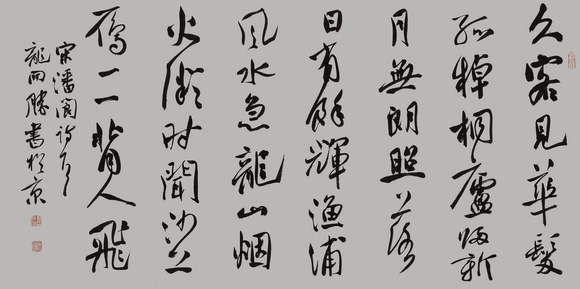 久客見華髮
孤棹桐廬歸新
月無朗照落
日有餘輝漁浦
風水急龍山烟
火微时聞沙上
雁一一背人飛
宋潘閬詩
龍開勝書於京